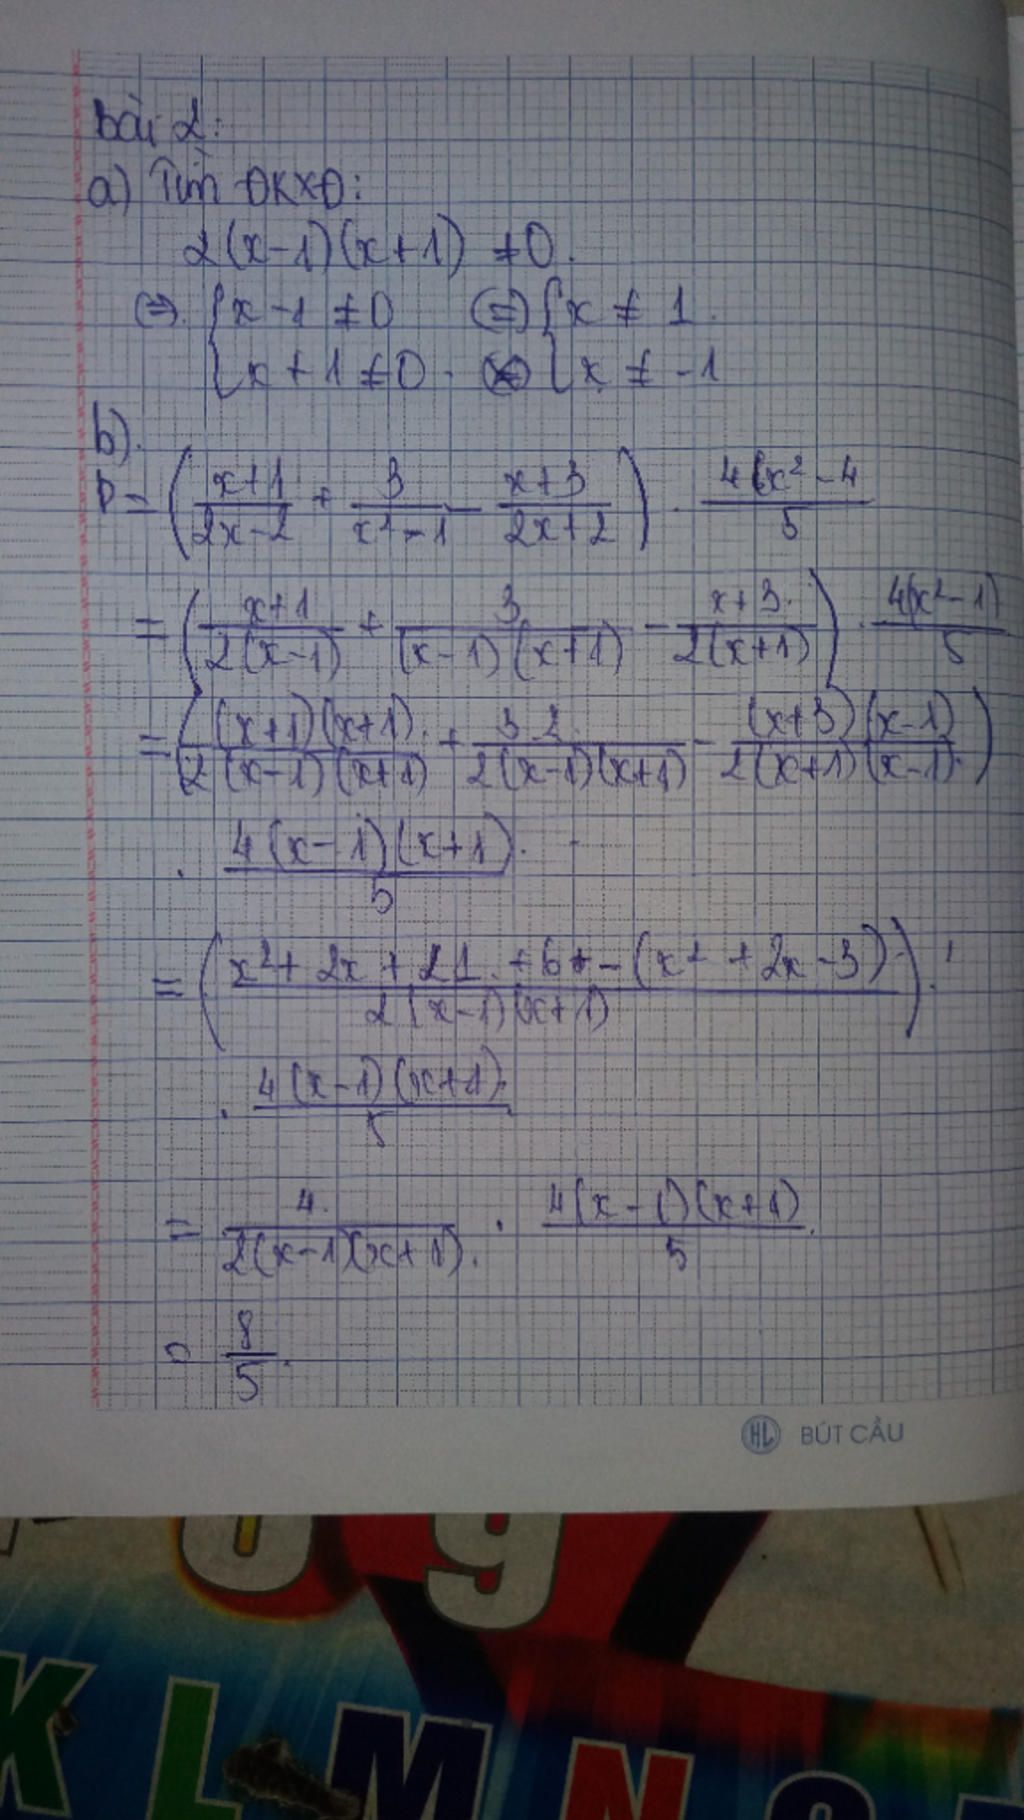 Bài 2:
a) Tìm ĐKXĐ:
2(x-1)(x+1) ≠ 0.
(⇒) { x - 1 ≠ 0 (=) { x ≠ 1.
{ x + 1 ≠ 0. { x ≠ -1
b).
P = ( (x+1)/(2x-2) + 3/(x²-1) - (x+3)/(2x+2) ) . (4x²-4)/5
= ( (x+1)/(2(x-1)) + 3/((x-1)(x+1)) - (x+3)/(2(x+1)) ) . 4(x²-1)/5
= ( (x+1)(x+1)/(2(x-1)(x+1)) + 3.2/(2(x-1)(x+1)) - (x+3)(x-1)/(2(x+1)(x-1)) )
. 4(x-1)(x+1)/5
= ( (x² + 2x + 1 + 6 - (x² + 2x - 3))/(2(x-1)(x+1)) ).
. 4(x-1)(x+1)/5
= 4/(2(x-1)(x+1)) . 4(x-1)(x+1)/5
= 8/5
HL BÚT CẦU
0 9
K L M N O